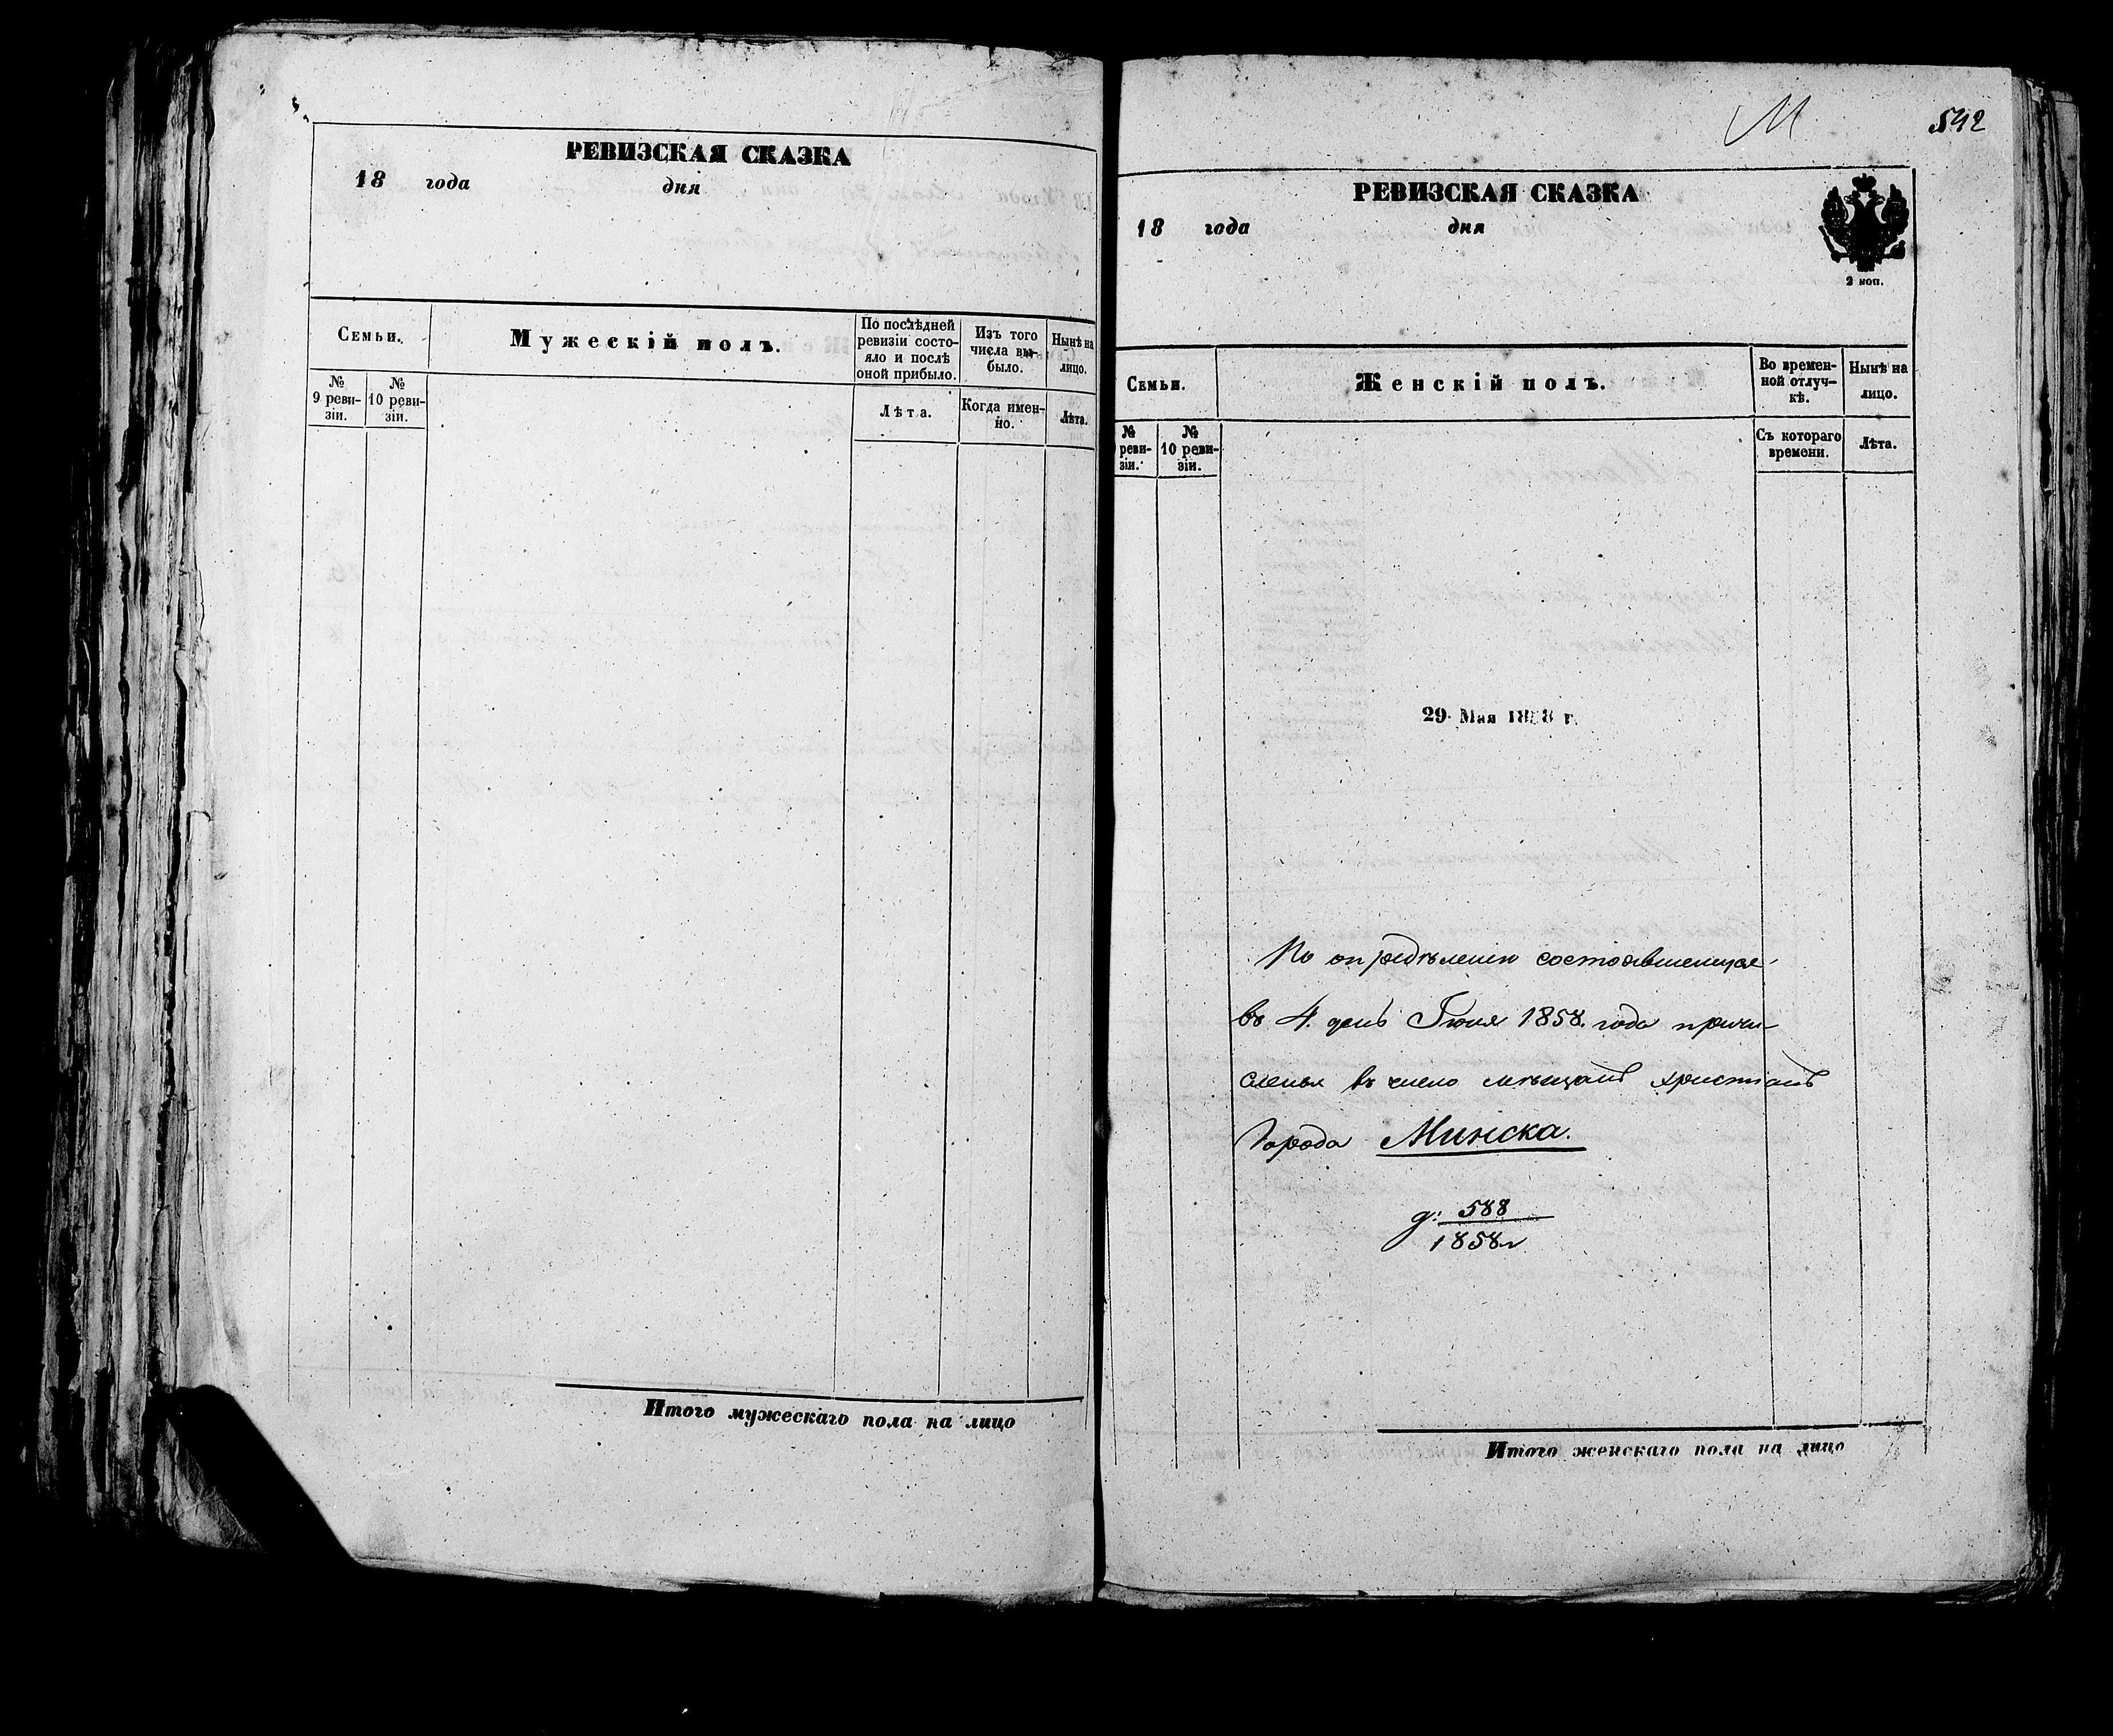 РЕВИЗСКАЯ СКАЗКА
18 года дня
Семьи.
Мужескій полъ.
По послѣдней
ревизіи состо-
яло и послѣ
оной прибыло.
Изъ того
числа вы-
было.
Нынѣ на
лицо.
№
9 реви-
зіи.
№
10 реви-
зіи.
Лѣта.
Когда имен-
но.
Лѣта.
Итого мужескаго пола на лицо
М
542
РЕВИЗСКАЯ СКАЗКА
18 года дня
2 коп.
Семьи.
Женскій полъ.
Во времен-
ной отлуч-
кѣ.
Нынѣ на
лицо.
№
реви-
зіи.
№
10 реви-
зіи.
Съ котораго
времени.
Лѣта.
29 Мая 1858 г.
По опредѣленію состоявшемуся
въ 4. день Іюня 1858. года причи-
слены въ число мѣщанъ христіанъ
города Минска.
д: 588
1858 г
Итого женскаго пола на лицо